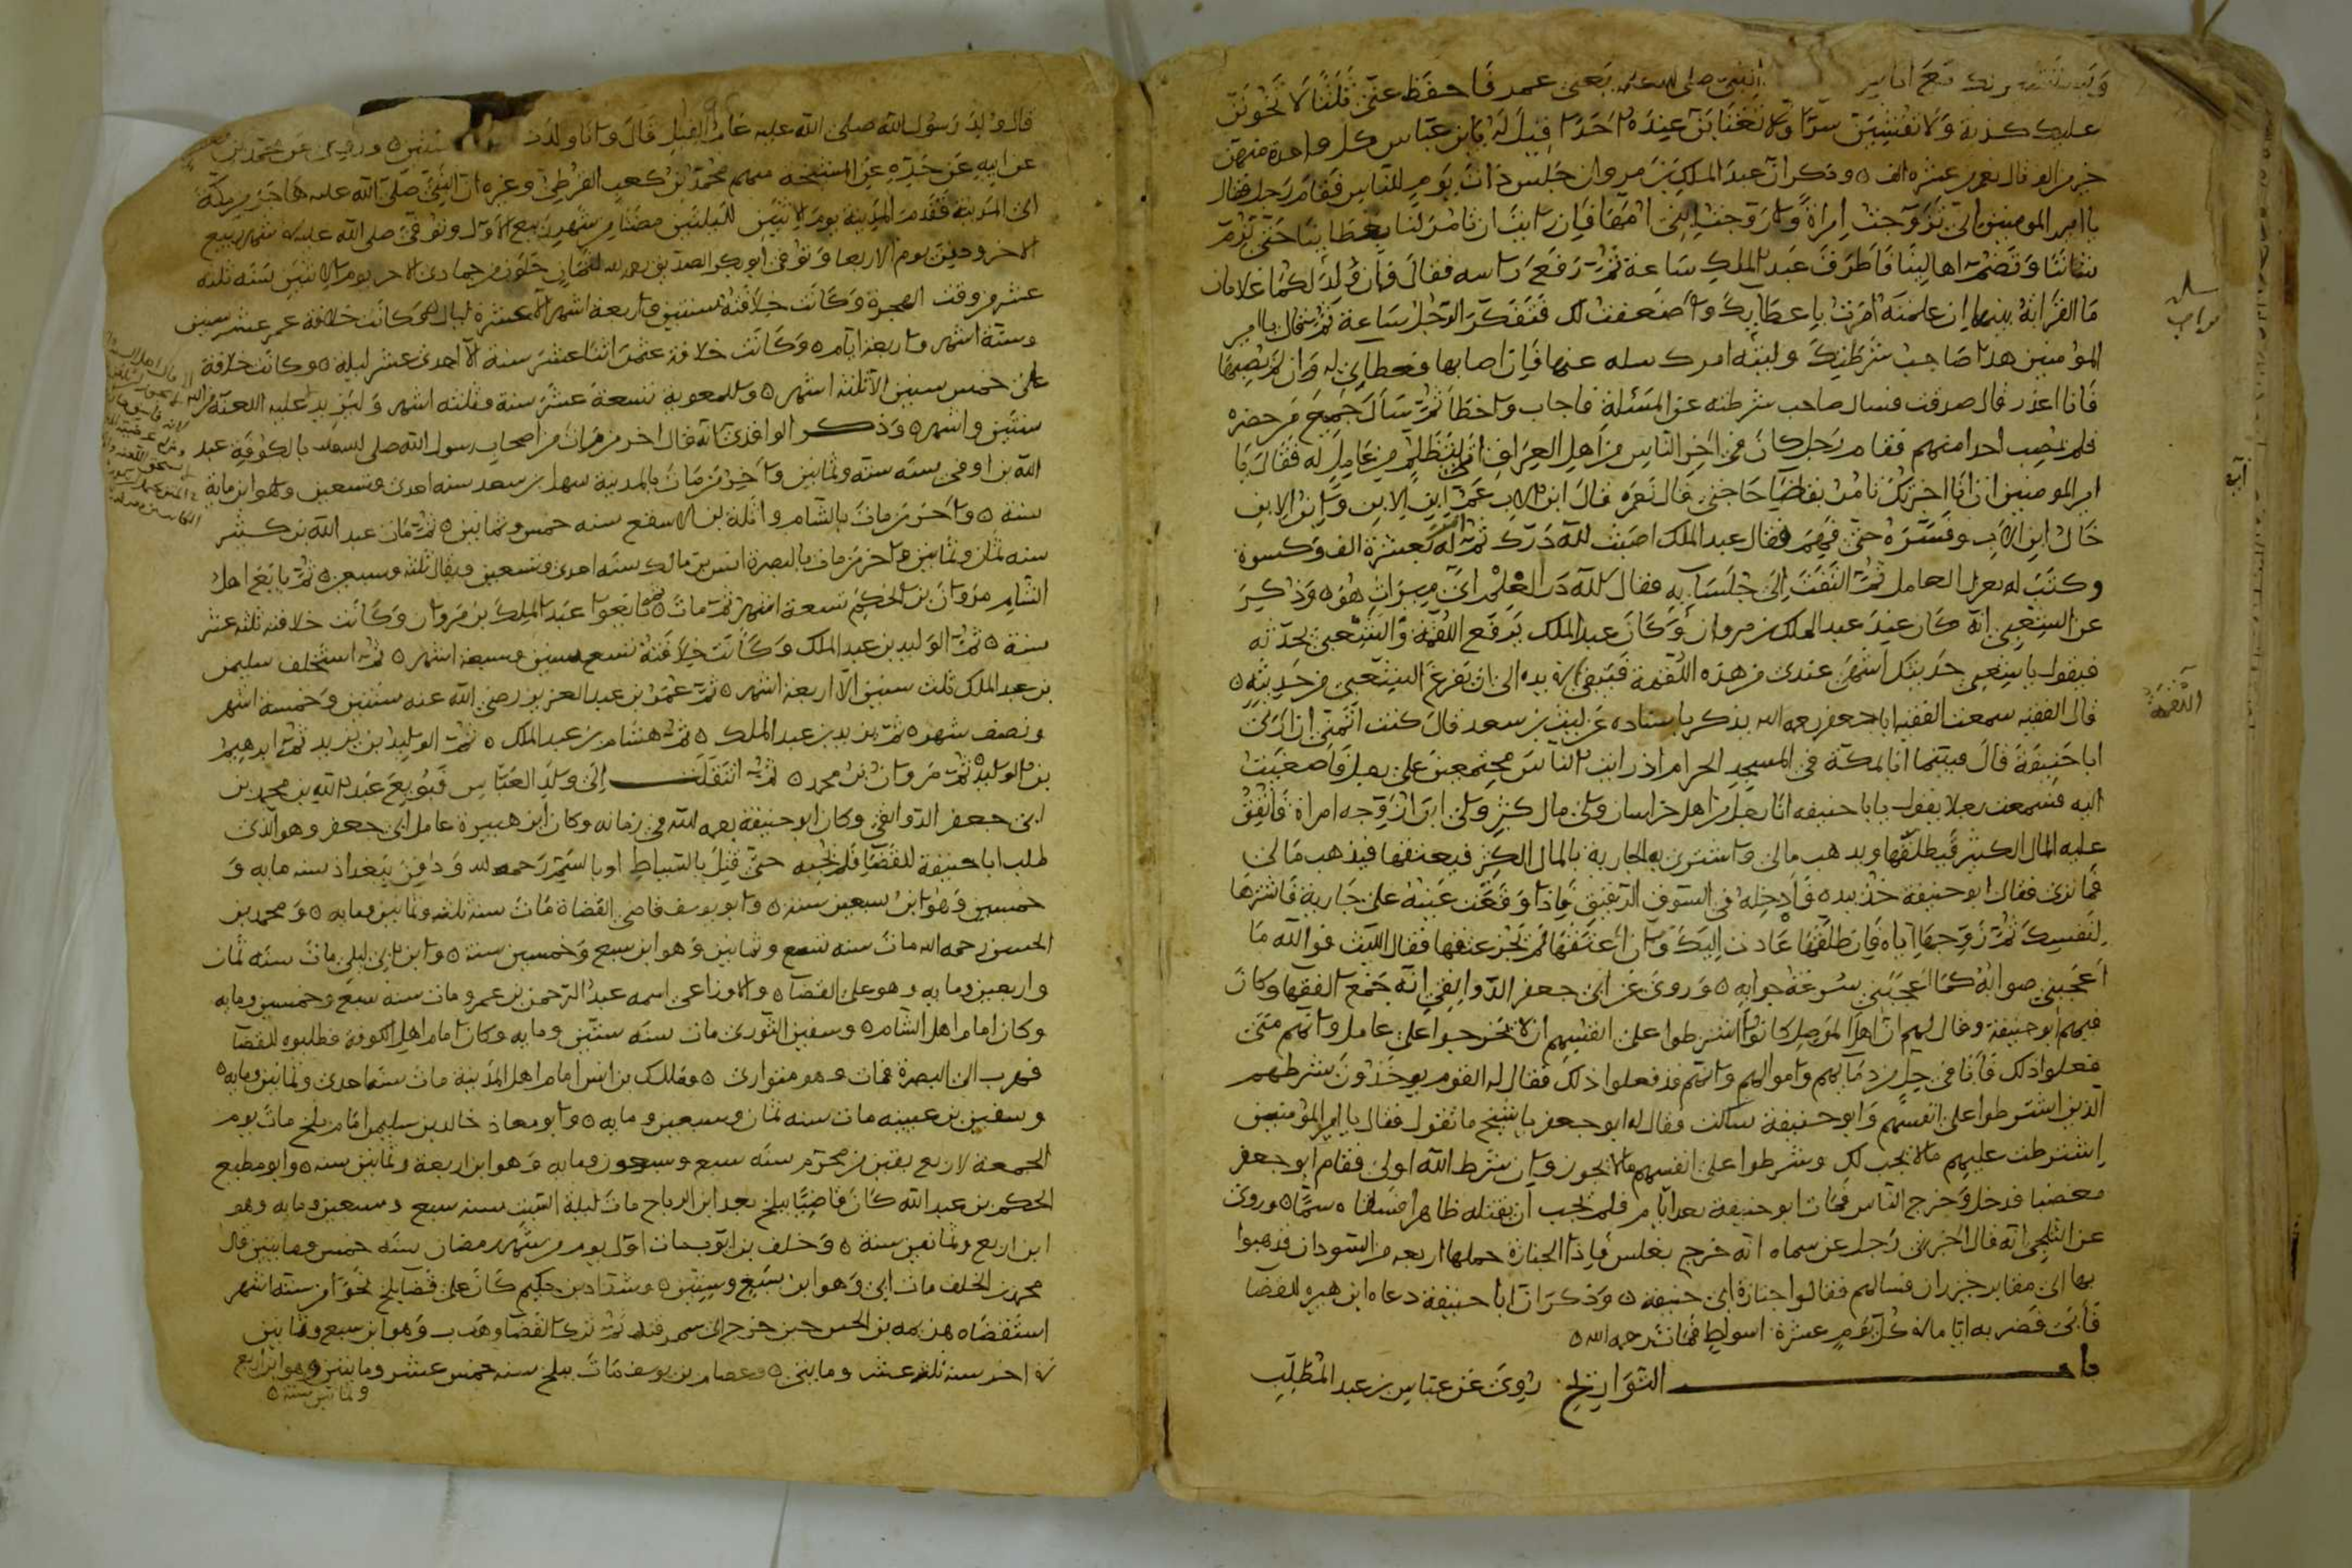 ويستشيرك مع اناس النبي صلى الله عليه يعنى عمر فاحفظ عنى ثلثا لا تخونن
عليك كذبة ولا تفشين سرا ولا تغتابن عنده احدا قيل له يا ابن عباس كل واحدة منهن
خير من الف قال نعم من عشرة الف ٥ وذكر ان عبد الملك بن مروان جلس ذات يوم للناس فقام رجل فقال
يا امير المومنين انى تزوجت امراة وزوجت ابنى امها فان رايت ان تامر لنا بعطايا حتى نرم
شاننا ونضم اهالينا فاطرق عبد الملك ساعة ثم رفع راسه فقال فان ولد لكما غلامان
ما القرابة بينهما ان علمته امرت باعطايك واضعفت لك فتفكر الرجل ساعة ثم قال يا امير
المؤمنين هذا صاحب شرطتك وليته امرك سله عنها فان اصابها فعطائى له وان لم يصبها
فانا اعذر قال صدقت فسال صاحب شرطته عن المسئلة فاجاب واخطأ ثم سأل جميع من حضره
فلم يصب احد منهم فقام رجل كان فى اخر الناس من اهل العراق اتى ليتظلم من عامل له فقال يا
امير المومنين ان انا اخبرتك تامر بقضا حاجتى قال نعم قال ابن الاب عم ابن الابن وابن الابن
خال ابن الاب وفسره حتى فهم فقال عبد الملك اصبت لله درك ثم امر له بعشرة الف وكسوة
وكتب له بعزل العامل ثم التفت الى جلسايه فقال لله در العلم اى ميراث هو ٥ وذكر
عن الشعبى انه كان عند عبد الملك بن مروان وكان عبد الملك يرفع اللقمة والشعبى يحدثه
فيقول يا شعبى حديثك اشهى عندى من هذه اللقمة فتبقى فى يده الى ان يفرغ الشعبى من حديثه ٥
قال الفقيه سمعت الفقيه ابا جعفر رحمه الله يذكر باسناده عن ليث بن سعد قال كنت اتمنى ان ارى
ابا حنيفة قال فبينما انا بمكة فى المسجد الحرام اذ رايت الناس مجتمعين على رجل فاصغيت
اليه فسمعت رجلا يقول يابا حنيفه انا رجل من اهل خراسان ولى مال كثير ولى ابن ازوجه امراة فانفق
عليه المال الكثير فيطلقها ويذهب مالى واشترى به الجارية بالمال الكثير فيعتقها فيذهب مالى
فما ترى فقال ابو حنيفة خذ بيده فادخله فى السوق الرقيق فاذا وقعت عينه على جارية فاشترها
لنفسك ثم زوجها اياه فان طلقها عادت اليك وان اعتقها لم يجز عتقها فقال الليث فو الله ما
اعجبنى صوابه كما اعجبنى سرعة جوابه ٥ وروى عن ابى جعفر الدوانقى انه جمع الفقها وكان
فيهم ابو حنيفة وقال لهم ان اهل الموصل كانوا اشترطوا على انفسهم ان لا يخرجوا على عامل وانهم متى
فعلوا ذلك فانا فى حل من دمائهم واموالهم وانهم قد فعلوا ذلك فقال له القوم يوخذون بشرطهم
الذين اشترطوا على انفسهم وابو حنيفة ساكت فقال له ابو جعفر يا شيخ ما تقول فقال يا امير المؤمنين
اشترطت عليهم ما لا يجب لك وشرطوا على انفسهم ما لا يجوز وان شرط الله اولى فقام ابو جعفر
مغضبا فدخل وخرج الناس فمات ابو حنيفة بعد ايام فلم يحب ان يقتله ظاهرا فسقاه سما ٥ وروى
عن الثلجى انه قال اخبرنى رجل عن سماه انه خرج بغلس فاذا الجنازة حملها اربعه من السودان فذهبوا
بها الى مقابر خيزران فسالهم فقالوا جنازة ابى حنيفة ٥ وذكر ان ابا حنيفة دعاه ابن هبيرة للقضا
فأبى فضربه اياما فى كل يوم عشرة اسواط فمات رحمه الله ٥
باب التواريخ روى عن عباس بن عبد المطلب
سل
مواجب
آبة
اللقمة
قال ولد رسول الله صلى الله عليه عام الفيل قال وانا ولدت سنتين ٥ وروى عن محمد بن
عن ابيه عن جده عن المشيخة منهم محمد بن كعب القرظى وغيره ان النبى صلى الله عليه هاجر من مكة
الى المدينة فقدم المدينة يوم الاثنين لليلتين مضتا من شهر ربيع الاول وتوفى صلى الله عليه فى شهر ربيع
الاخر ودفن يوم الاربعا وتوفى ابو بكر الصديق رحمه الله لثمان خلون من جمادى الاخر يوم الاثنين سنة ثلثه
عشر من وقت الهجرة وكانت خلافته سنتين واربعة اشهر الا عشرة ليال ٥ وكانت خلافة عمر عشر سنين
وستة اشهر واربعة ايام ٥ وكانت خلافة عثمن اثنا عشر سنة الا احدى عشر ليلة ٥ وكانت خلافة
على خمس سنين الا ثلثة اشهر ٥ وللمعوية تسعة عشر سنة وثلثه اشهر وليزيد عليه اللعنة
سنتين واشهر ٥ وذكر الواقدى انه قال اخر من مات من اصحاب رسول الله صلى الله عليه بالكوفة عبد
الله بن اوفى سنه سته وثمانين واخر من مات بالمدينة سهل بن سعد سنه احدى وتسعين وهو ابن ماية
سنة ٥ واخر من مات بالشام واثلة بن الاسقع سنه خمس وثمانين ٥ ثم مات عبد الله بن كثير
سنه ثمان وثمانين واخر من مات بالبصرة انس بن مالك سنه احدى وتسعين ويقال ثلثه وسبعين ٥ ثم بايع اهل
الشام مروان بن الحكم تسعة اشهر ثم مات ٥ ثم بايعوا عبد الملك بن مروان وكانت خلافته ثلثه عشر
سنة ٥ ثم الوليد بن عبد الملك وكانت خلافته تسع سنين وسبعة اشهر ٥ ثم استخلف سليمن
بن عبد الملك ثلث سنين الا اربعة اشهر ٥ ثم عمر بن عبد العزيز رضى الله عنه سنتين وخمسة اشهر
ونصف شهر ٥ ثم يزيد بن عبد الملك ٥ ثم هشام بن عبد الملك ٥ ثم الوليد بن يزيد ثم ابرهيم
بن الوليد ٥ ثم مروان بن محمد ٥ ثم انتقلت الى ولد العباس فبويع عبد الله بن محمد بن
ابى جعفر الدوانقى وكان ابو حنيفة رحمه الله فى زمانه وكان ابن هبيرة عامل ابى جعفر وهو الذى
طلب ابا حنيفة للقضا فلم يجبه حتى قتل بالسياط او بالسم رحمه الله ودفن ببغداذ سنه مايه و
خمسين وهو ابن سبعين سنة ٥ وابو يوسف قاضى القضاة مات سنه ثلثه وثمانين ومايه ٥ ومحمد بن
الحسن رحمه الله مات سنه تسع وثمانين وهو ابن سبع وخمسين سنة ٥ وابن ابى ليلى مات سنه ثمان
واربعين ومايه وهو على القضا ٥ والاوزاعى اسمه عبد الرحمن بن عمرو مات سنة سبع وخمسين ومايه
وكان امام اهل الشام ٥ وسفين الثورى مات سنه ستين ومايه وكان امام اهل الكوفة فطلبوه للقضا
فهرب الى البصرة فمات وهو متوارى ٥ ومالك بن انس امام اهل المدينة مات سنه احدى وثمانين ومايه ٥
وسفين بن عيينه مات سنه ثمان وسبعين ومايه ٥ وابو معاذ خالد بن سليمن امام بلخ مات يوم
الجمعة لاربع بقين من محرم سنه سبع وسبعون ومايه وهو ابن اربعة وثمانين سنه ٥ وابو مطيع
الحكم بن عبد الله كان قاضيا ببلخ بعد ابن الرماح مات ليلة السبت سنه سبع وسبعين ومايه وهو
ابن اربع وثمانين سنة ٥ وخلف بن ايوب مات اول يوم من شهر رمضان سنه خمس ومايتين قال
محمد بن الخلف مات ابى وهو ابن سبع وستين ٥ وشداد بن حكيم كان على قضا بلخ نحوا من سته اشهر
استقضاه هزيمه بن الحسن حين خرج الى سمرقند ثم ترك القضا وهرب وهو ابن سبع وثمانين
فى اخر سنه ثلثه عشر ومايتين ٥ وعصام بن يوسف مات ببلخ سنه خمس عشر ومايتين وهو ابن اربع
وثمانين سنة ٥